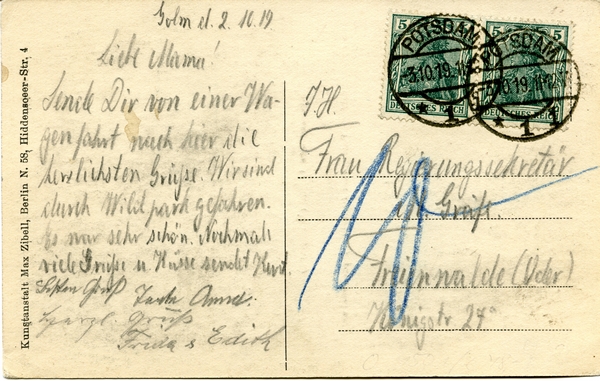 Golm d. 2. 10. 19
Liebe Mama!
Sende Dir von einer Wa-
genfahrt nach hier die
herzlichsten Grüße. Wir sind
durch Wildpark gefahren.
Es war sehr schön. Nochmals
viele Grüße u Küsse sendet Kurt
Besten Gruß Tante Anna.
Herzl. Grüße
Frida & Edith
Kunstanstalt Max Zibell, Berlin N. 58, Hiddenseeer-Str. 4
5
5
POTSDAM
POTSDAM
3.10.19.
3.10.19.
DEUTSCHES REICH
DEUTSCHES REICH
* 1
* 1
Frau Regierungssekretär
Freienwalde (Oder)
Königstr 27